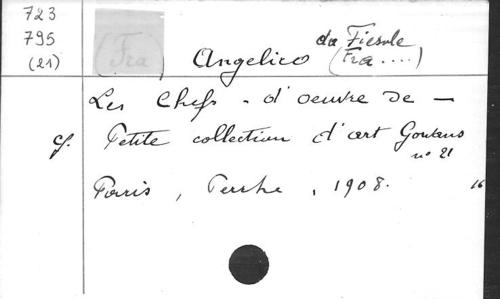 723
795
(21)
(Fra)
Angelico da Fiesole
(Fra ....)
Les Chefs-d'oeuvre de —
cf. Petite collection d'art Gowans
n° 21
Paris, Perche, 1908. 16